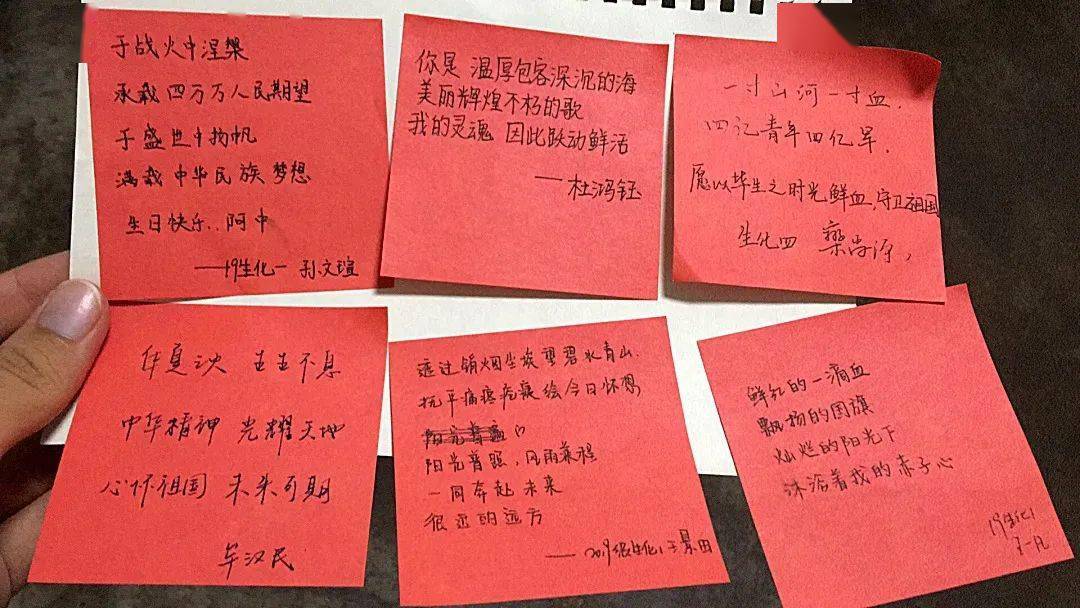 于战火中涅槃
承载四万万人民期望
于盛世中扬帆
满载中华民族梦想
生日快乐..阿中
——19生化一 孙文瑄
你是 温厚包容深沉的海
美丽辉煌不朽的歌
我的灵魂 因此跃动鲜活
——杜鸿钰
一寸山河一寸血,
四记青年四亿军.
愿以毕生之时光鲜血,守卫祖国
生化四 栾尚源,
华夏泱泱 生生不息
中华精神 光耀天地
心怀祖国 未来可期
牟汉民
透过硝烟尘埃望碧水青山.
抚平痛疼疮痍绘今日怀想
阳光普照,风雨兼程
一同奔赴未来
很远的远方
——2019级生化1 王景田
鲜红的一滴血
飘扬的国旗
灿烂的阳光下
沐浴着我的赤子心
19生化1
王一凡